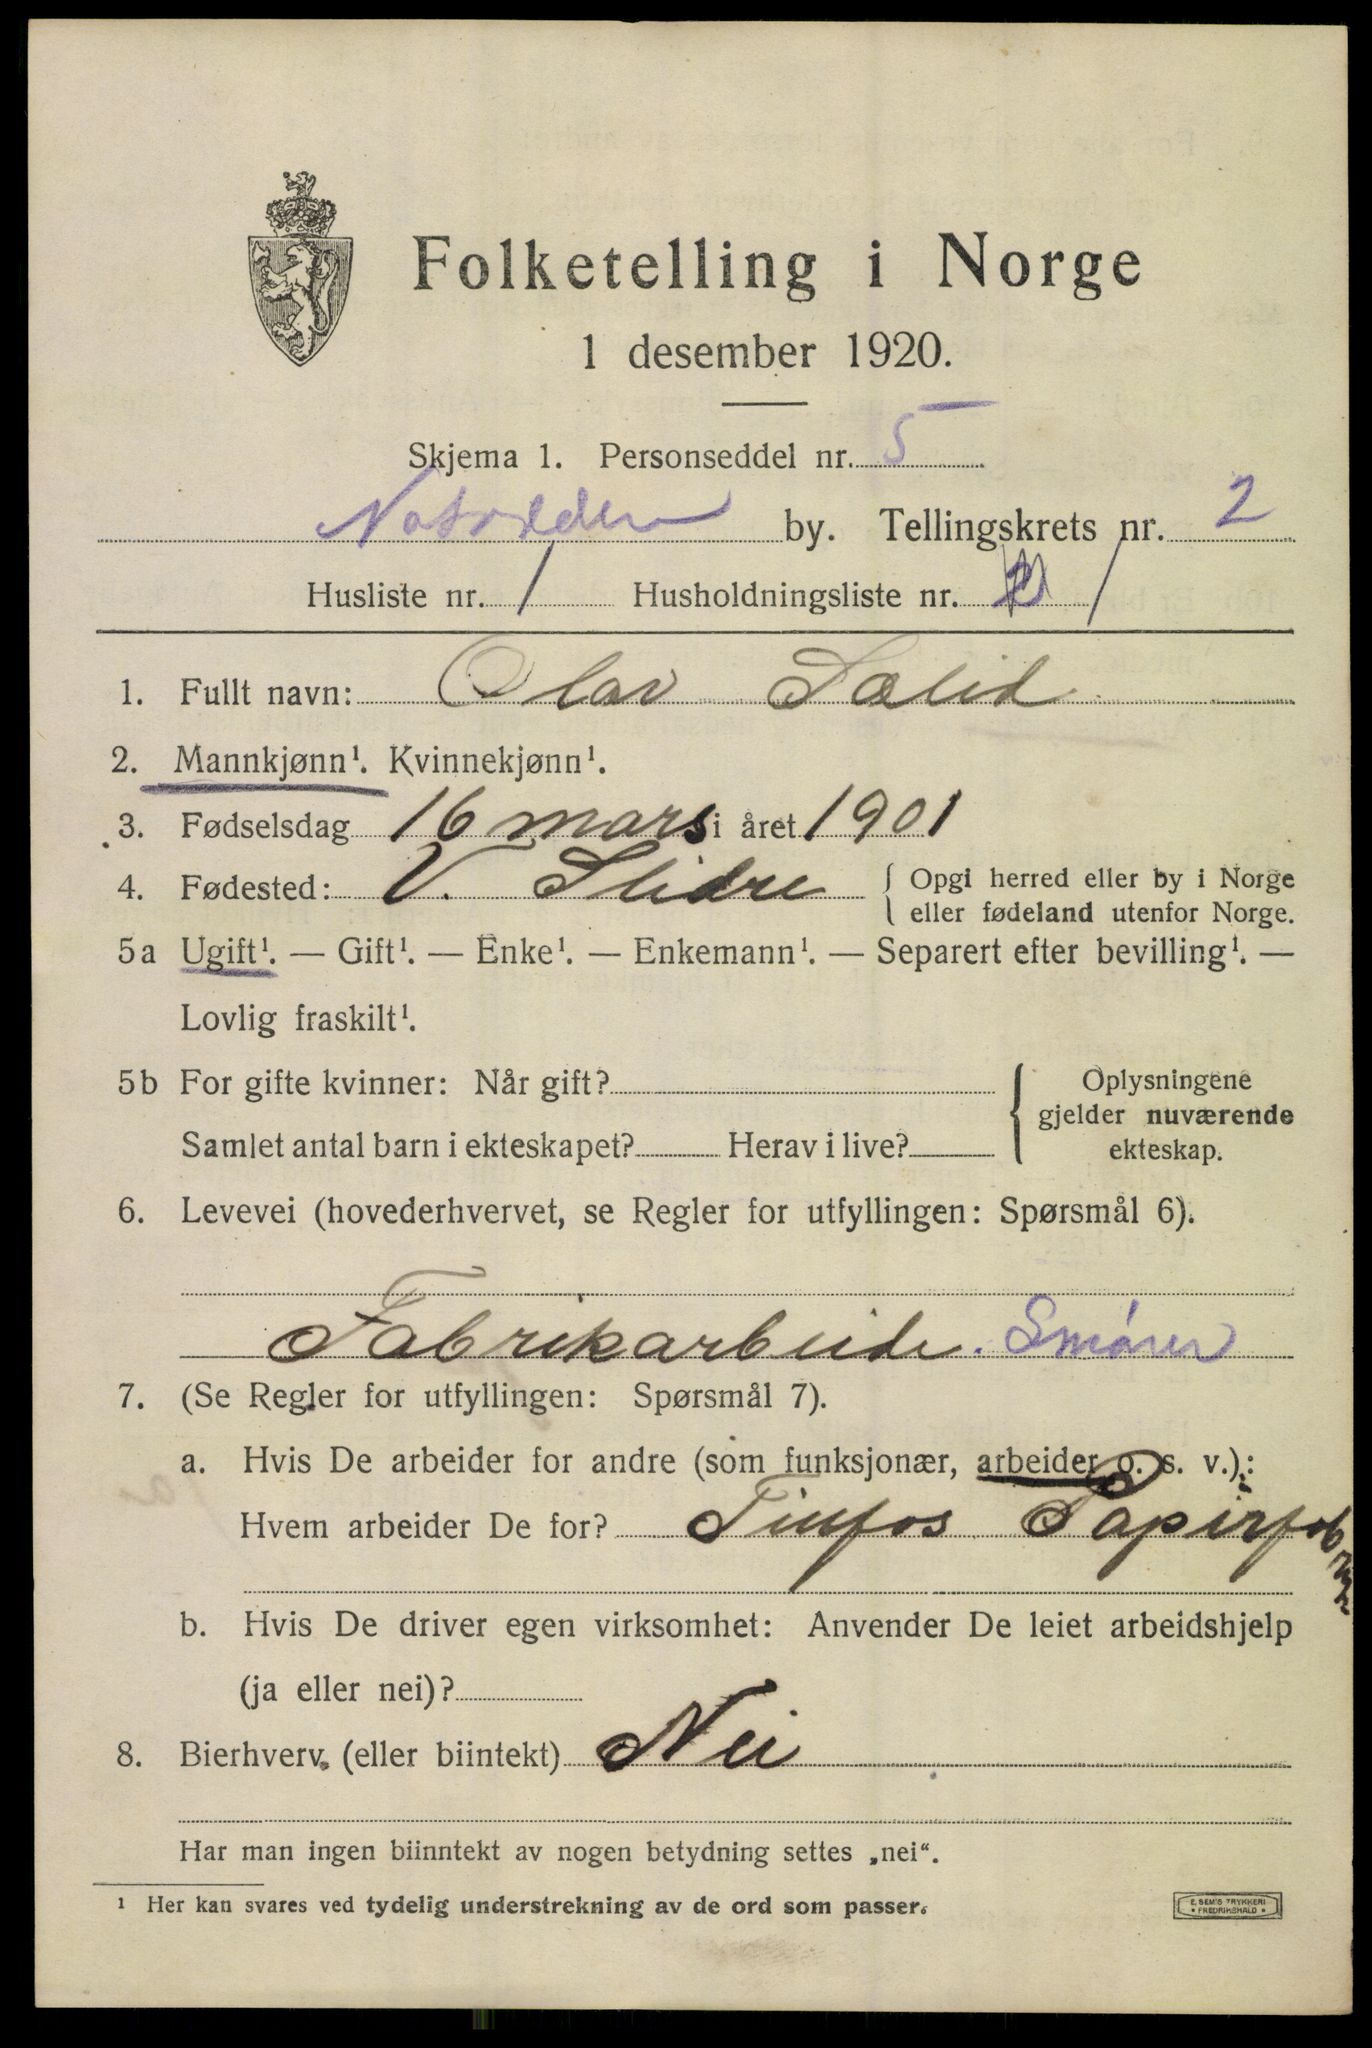 Folketelling i Norge
1 desember 1920.
Skjema 1. Personseddel nr. 5
Notodden by. Tellingskrets nr. 2
Husliste nr. 1 Husholdningsliste nr. 2 1
1. Fullt navn: Olav Sælid
2. Mannkjønn¹. Kvinnekjønn¹.
3. Fødselsdag 16 mars i året 1901
4. Fødested: V. Slidre { Opgi herred eller by i Norge
eller fødeland utenfor Norge.
5a Ugift¹. — Gift¹. — Enke¹. — Enkemann¹. — Separert efter bevilling¹. —
Lovlig fraskilt¹.
5b For gifte kvinner: Når gift? { Oplysningene
gjelder nuværende
Samlet antal barn i ekteskapet? Herav i live? ekteskap.
6. Levevei (hovederhvervet, se Regler for utfyllingen: Spørsmål 6).
Fabrikarbeide. Smører
7. (Se Regler for utfyllingen: Spørsmål 7).
a. Hvis De arbeider for andre (som funksjonær, arbeider o. s. v.):
Hvem arbeider De for? Tinfos Papirfab
b. Hvis De driver egen virksomhet: Anvender De leiet arbeidshjelp
(ja eller nei)?
8. Bierhverv. (eller biintekt) Nei
Har man ingen biinntekt av nogen betydning settes „nei“.
¹ Her kan svares ved tydelig understrekning av de ord som passer.
E. SEM'S TRYKKERI
• FREDRIKSHALD •